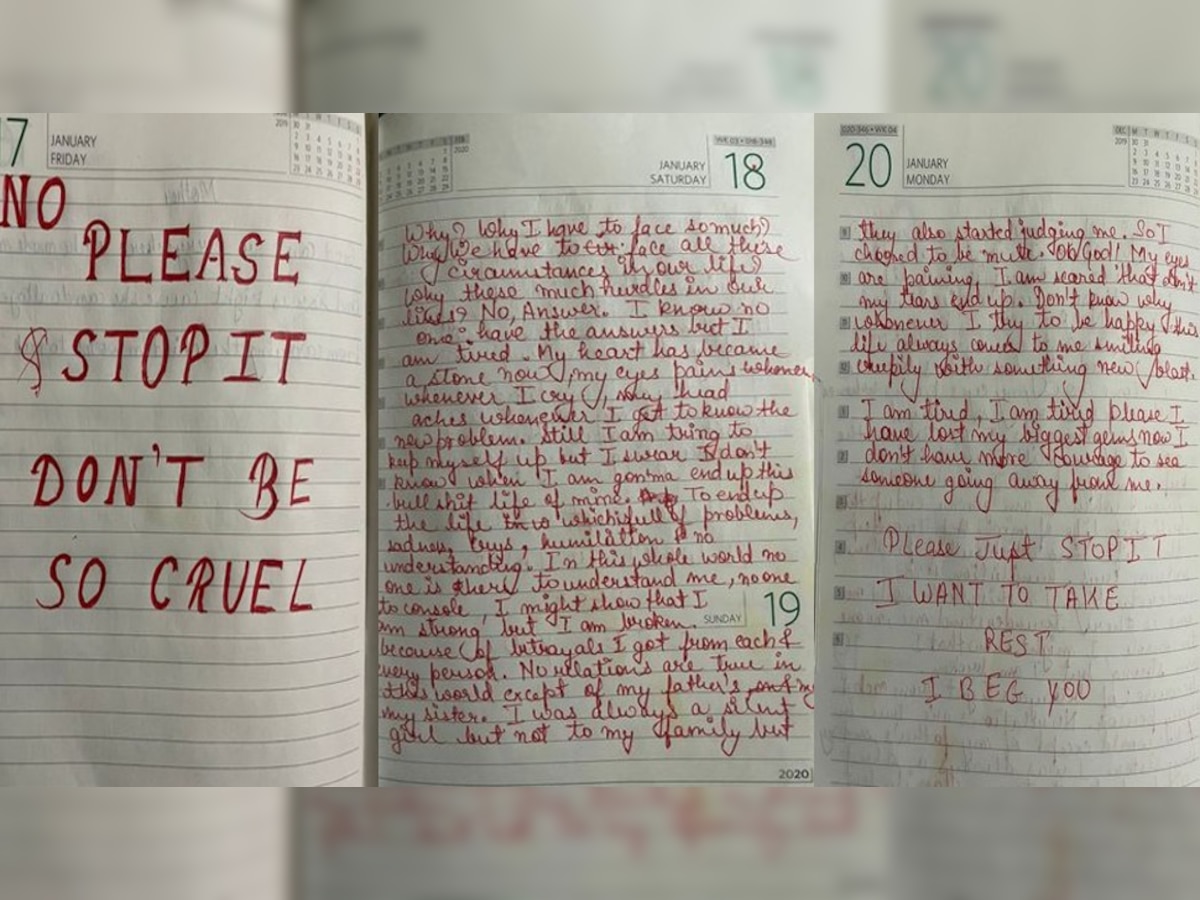 7
JANUARY
FRIDAY
2019
NO
PLEASE
STOP IT
DON'T BE
SO CRUEL
2020
JANUARY
SATURDAY
18
Why? Why I have to face so much?
Why We have to face all these
circumstances in our life?
Why these much hurdles in our
lifes? No, Answer. I know no
one have the answers but I
am tired. My heart has became
a stone now, my eyes pains
whenever I cry, my head
aches whenever I get to know the
new problem. Still I am tring to
keep myself up but I swear I don't
know when I am gonna end up this
bull shit life of mine. To end up
the life which is full of problems,
sadness, , humilation & no
understanding. In this whole world no
one is there to understand me, no one
to console, I might show that I
am strong, but I am broken.
SUNDAY
19
because of betrayals I got from each &
every person. No relations are true in
this world except of my father's and my
my sister. I was always a silent
girl but not to my family but
2020
20
JANUARY
MONDAY
DEC
2019
they also started judging me. So I
choosed to be mute. Oh God! My eyes
are paining, I am scared that don't
my tears end up. Don't know why
whenever I try to be happy this
life always comes to me smiling
creepily with something new blast.
I am tired, I am tired please I
have lost my biggest gems now I
don't have more courage to see
someone going away from me.
Please Just STOP IT
I WANT TO TAKE
REST
I BEG YOU